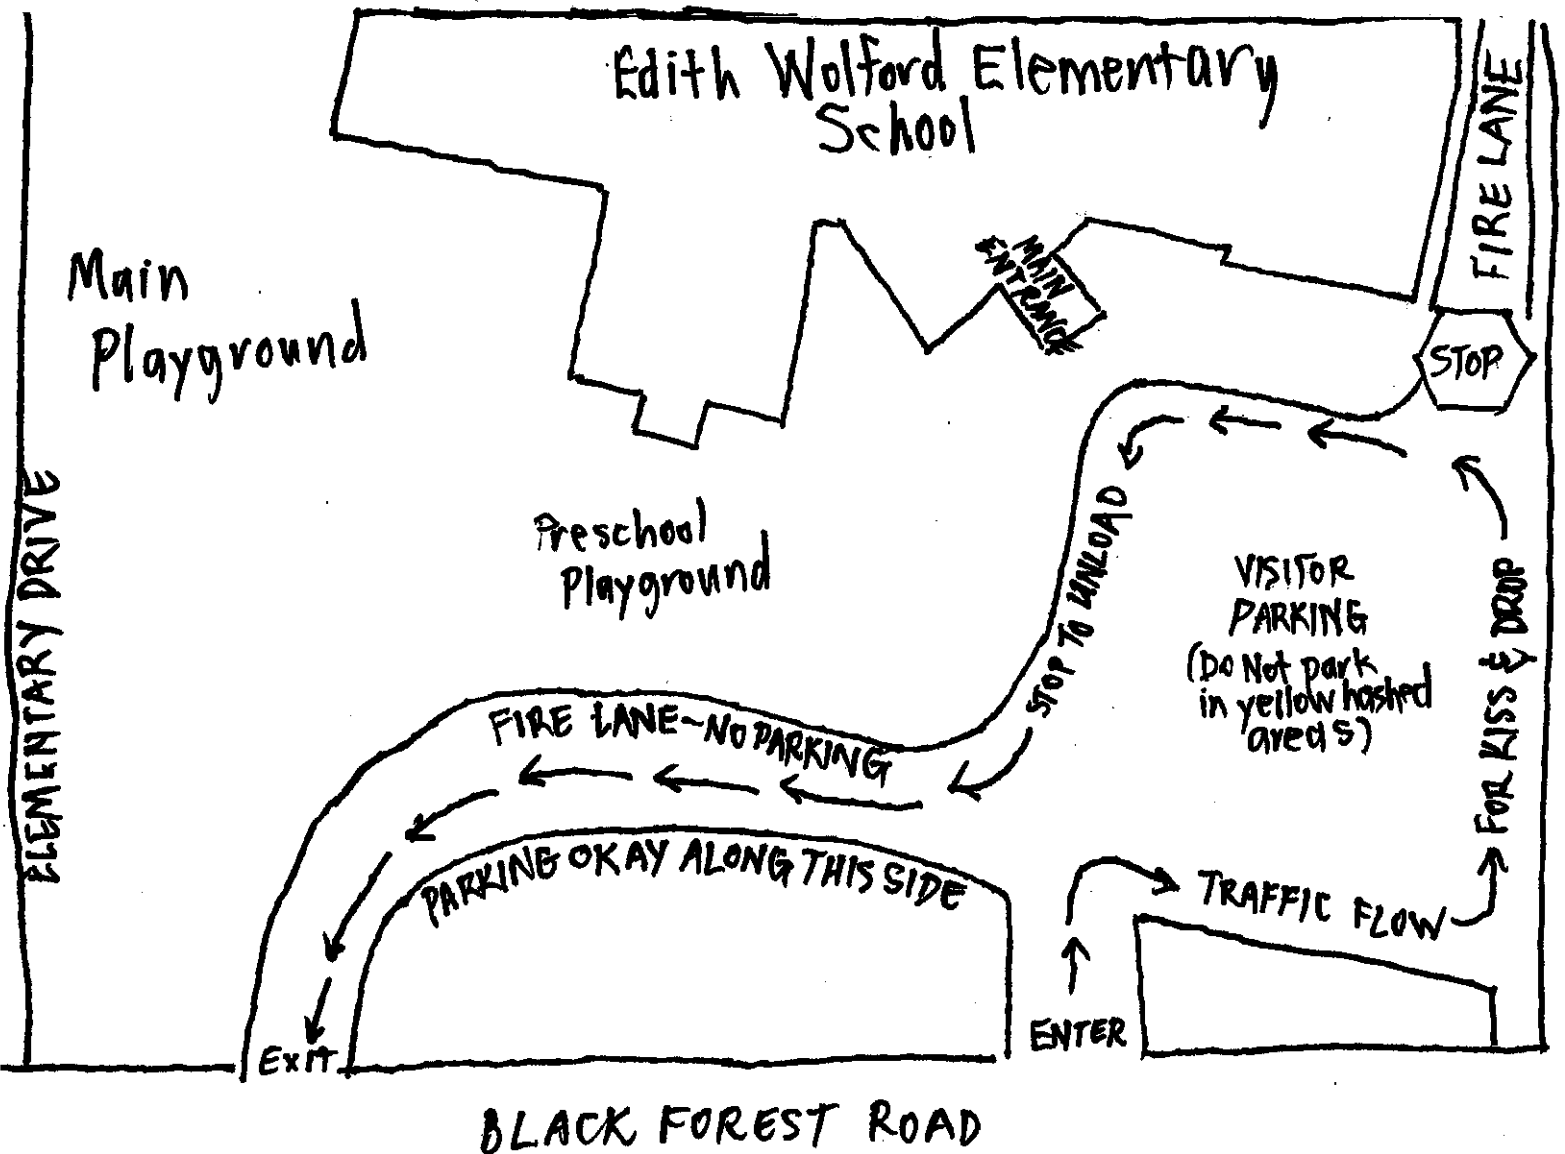 Edith Wolford Elementary
School
FIRE LANE
MAIN
ENTRANCE
Main
Playground
STOP
ELEMENTARY DRIVE
Preschool
Playground
STOP TO UNLOAD
VISITOR
PARKING
(Do Not park
in yellow hashed
areas)
FOR KISS & DROP
FIRE LANE~NO PARKING
PARKING OKAY ALONG THIS SIDE
TRAFFIC FLOW
ENTER
Exit
BLACK FOREST ROAD